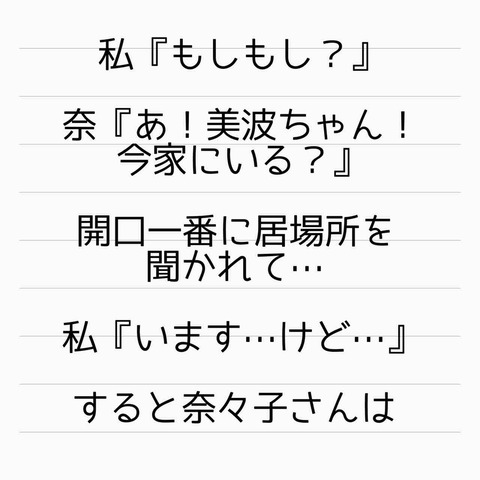 私『もしもし？』
奈『あ！美波ちゃん！
今家にいる？』
開口一番に居場所を
聞かれて…
私『います…けど…』
すると奈々子さんは